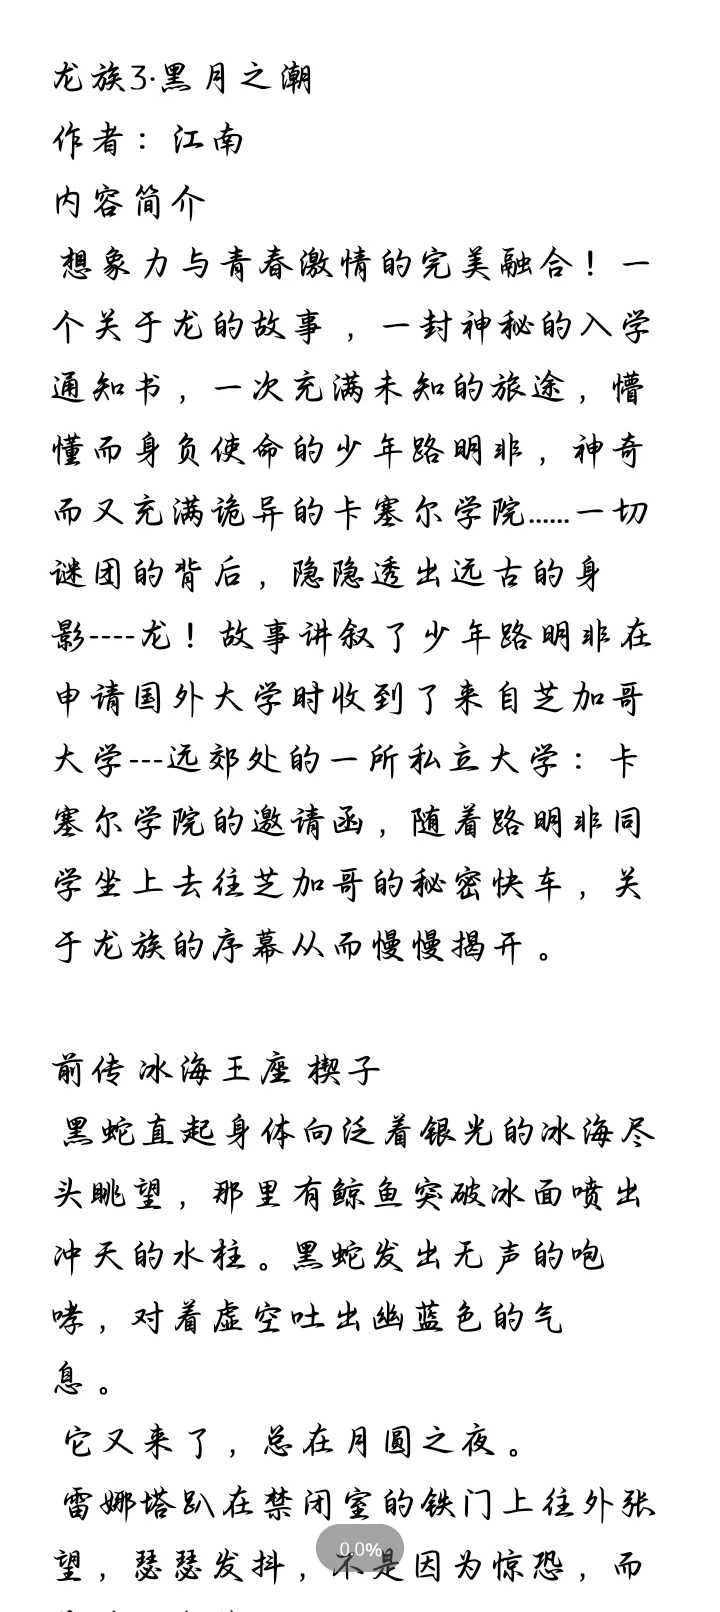 龙族3·黑月之潮
作者：江南
内容简介
想象力与青春激情的完美融合！一
个关于龙的故事 ，一封神秘的入学
通知书，一次充满未知的旅途，懵
懂而身负使命的少年路明非，神奇
而又充满诡异的卡塞尔学院……一切
谜团的背后，隐隐透出远古的身
影----龙！故事讲叙了少年路明非在
申请国外大学时收到了来自芝加哥
大学---远郊处的一所私立大学：卡
塞尔学院的邀请函，随着路明非同
学坐上去往芝加哥的秘密快车，关
于龙族的序幕从而慢慢揭开。
前传 冰海王座 楔子
黑蛇直起身体向泛着银光的冰海尽
头眺望，那里有鲸鱼突破冰面喷出
冲天的水柱。黑蛇发出无声的咆
哮，对着虚空吐出幽蓝色的气
息。
它又来了，总在月圆之夜。
雷娜塔趴在禁闭室的铁门上往外张
望，瑟瑟发抖，不是因为惊恐，而
0.0%